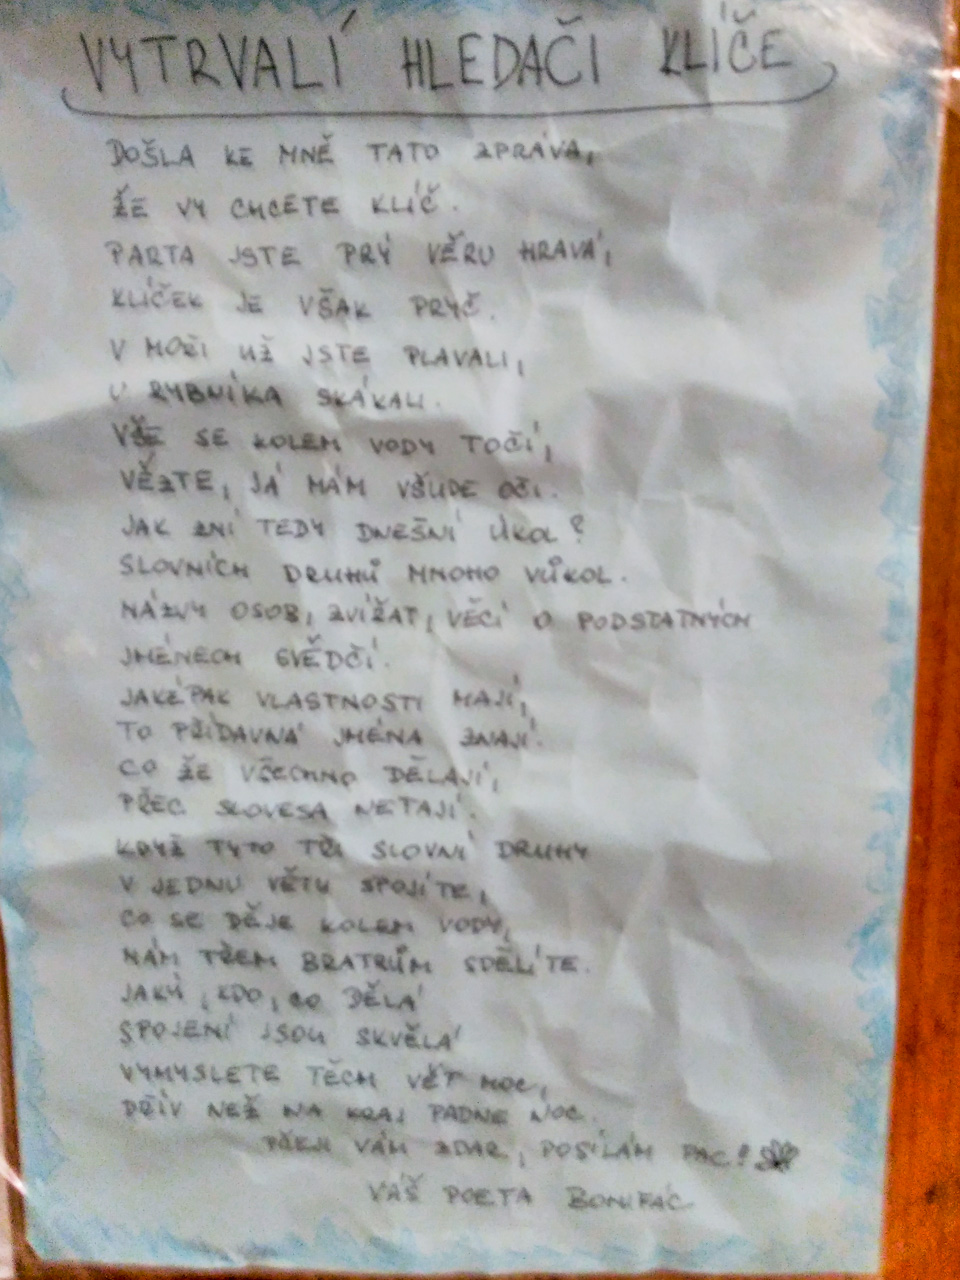 VYTRVALÍ HLEDAČI KLÍČE
DOŠLA KE MNĚ TATO ZPRÁVA,
ŽE VY CHCETE KLÍČ.
PARTA JSTE PRÝ VĚRU HRAVÁ,
KLÍČEK JE VŠAK PRYČ.
V MOŘI UŽ JSTE PLAVALI,
U RYBNÍKA SKÁKALI.
VŠE SE KOLEM VODY TOČÍ,
VĚZTE, JÁ MÁM VŠUDE OČI.
JAK ZNÍ TEDY DNEŠNÍ ÚKOL?
SLOVNÍCH DRUHŮ MNOHO VŮKOL.
NÁZVY OSOB, ZVÍŘAT, VĚCÍ O PODSTATNÝCH
JMÉNECH SVĚDČÍ.
JAKÉPAK VLASTNOSTI MAJÍ,
TO PŘÍDAVNÁ JMÉNA ZNAJÍ.
CO ŽE VŠECHNO DĚLAJÍ,
PŘEC SLOVESA NETAJÍ.
KDYŽ TYTO TŘI SLOVNÍ DRUHY
V JEDNU VĚTU SPOJÍTE,
CO SE DĚJE KOLEM VODY,
NÁM TŘEM BRATRŮM SDĚLÍTE.
JAKÝ, KDO, CO DĚLÁ
SPOJENÍ JSOU SKVĚLÁ
VYMYSLETE TĚCH VĚT MOC,
DŘÍV NEŽ NA KRAJ PADNE NOC.
PŘEJI VÁM ZDAR, POSÍLÁM PAC!
VÁŠ POETA BONIFÁC